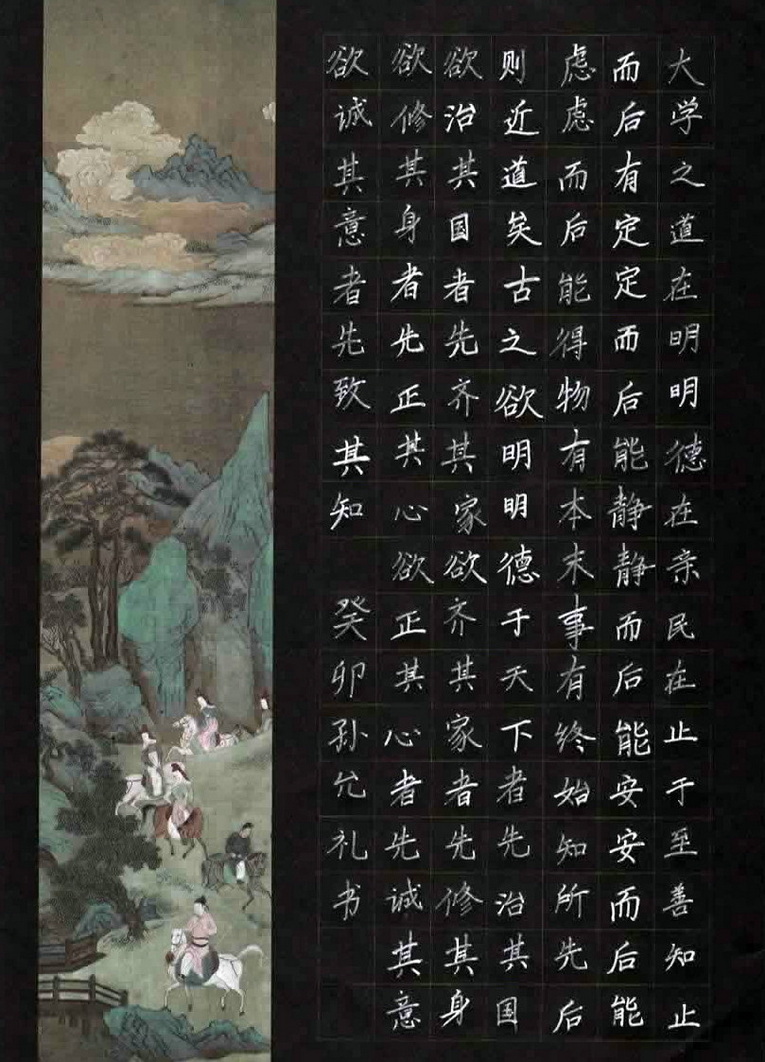 大学之道在明明德在亲民在止于至善知止
而后有定定而后能静静而后能安安而后能
虑虑而后能得物有本末事有终始知所先后
则近道矣古之欲明明德于天下者先治其国
欲治其国者先齐其家欲齐其家者先修其身
欲修其身者先正其心欲正其心者先诚其意
欲诚其意者先致其知 癸卯孙允礼书